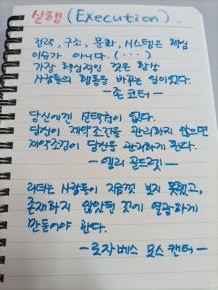 실행(Execution)
전략, 구조, 문화, 시스템은 핵심
이슈가 아니다. (···)
가장 핵심적인 것은 항상
사람들의 행동을 바꾸는 일이었다.
-존 코터-
당신에겐 선택권이 없다.
당신이 제약조건을 관리하지 않으면
제약조건이 당신을 관리하게 된다.
-엘리 골드렛-
리더는 사람들이 지금껏 보지 못했고,
존재하지 않았던 것에 열광하게
만들어야 한다.
-로자베스 모스 캔터-